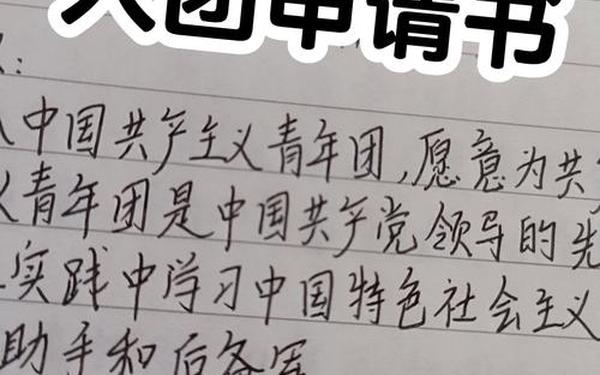 入团申请书
:
中国共产主义青年团,愿意为共
义青年团是中国共产党领导的先
实践中学习中国特色社会主义
助手和后备军